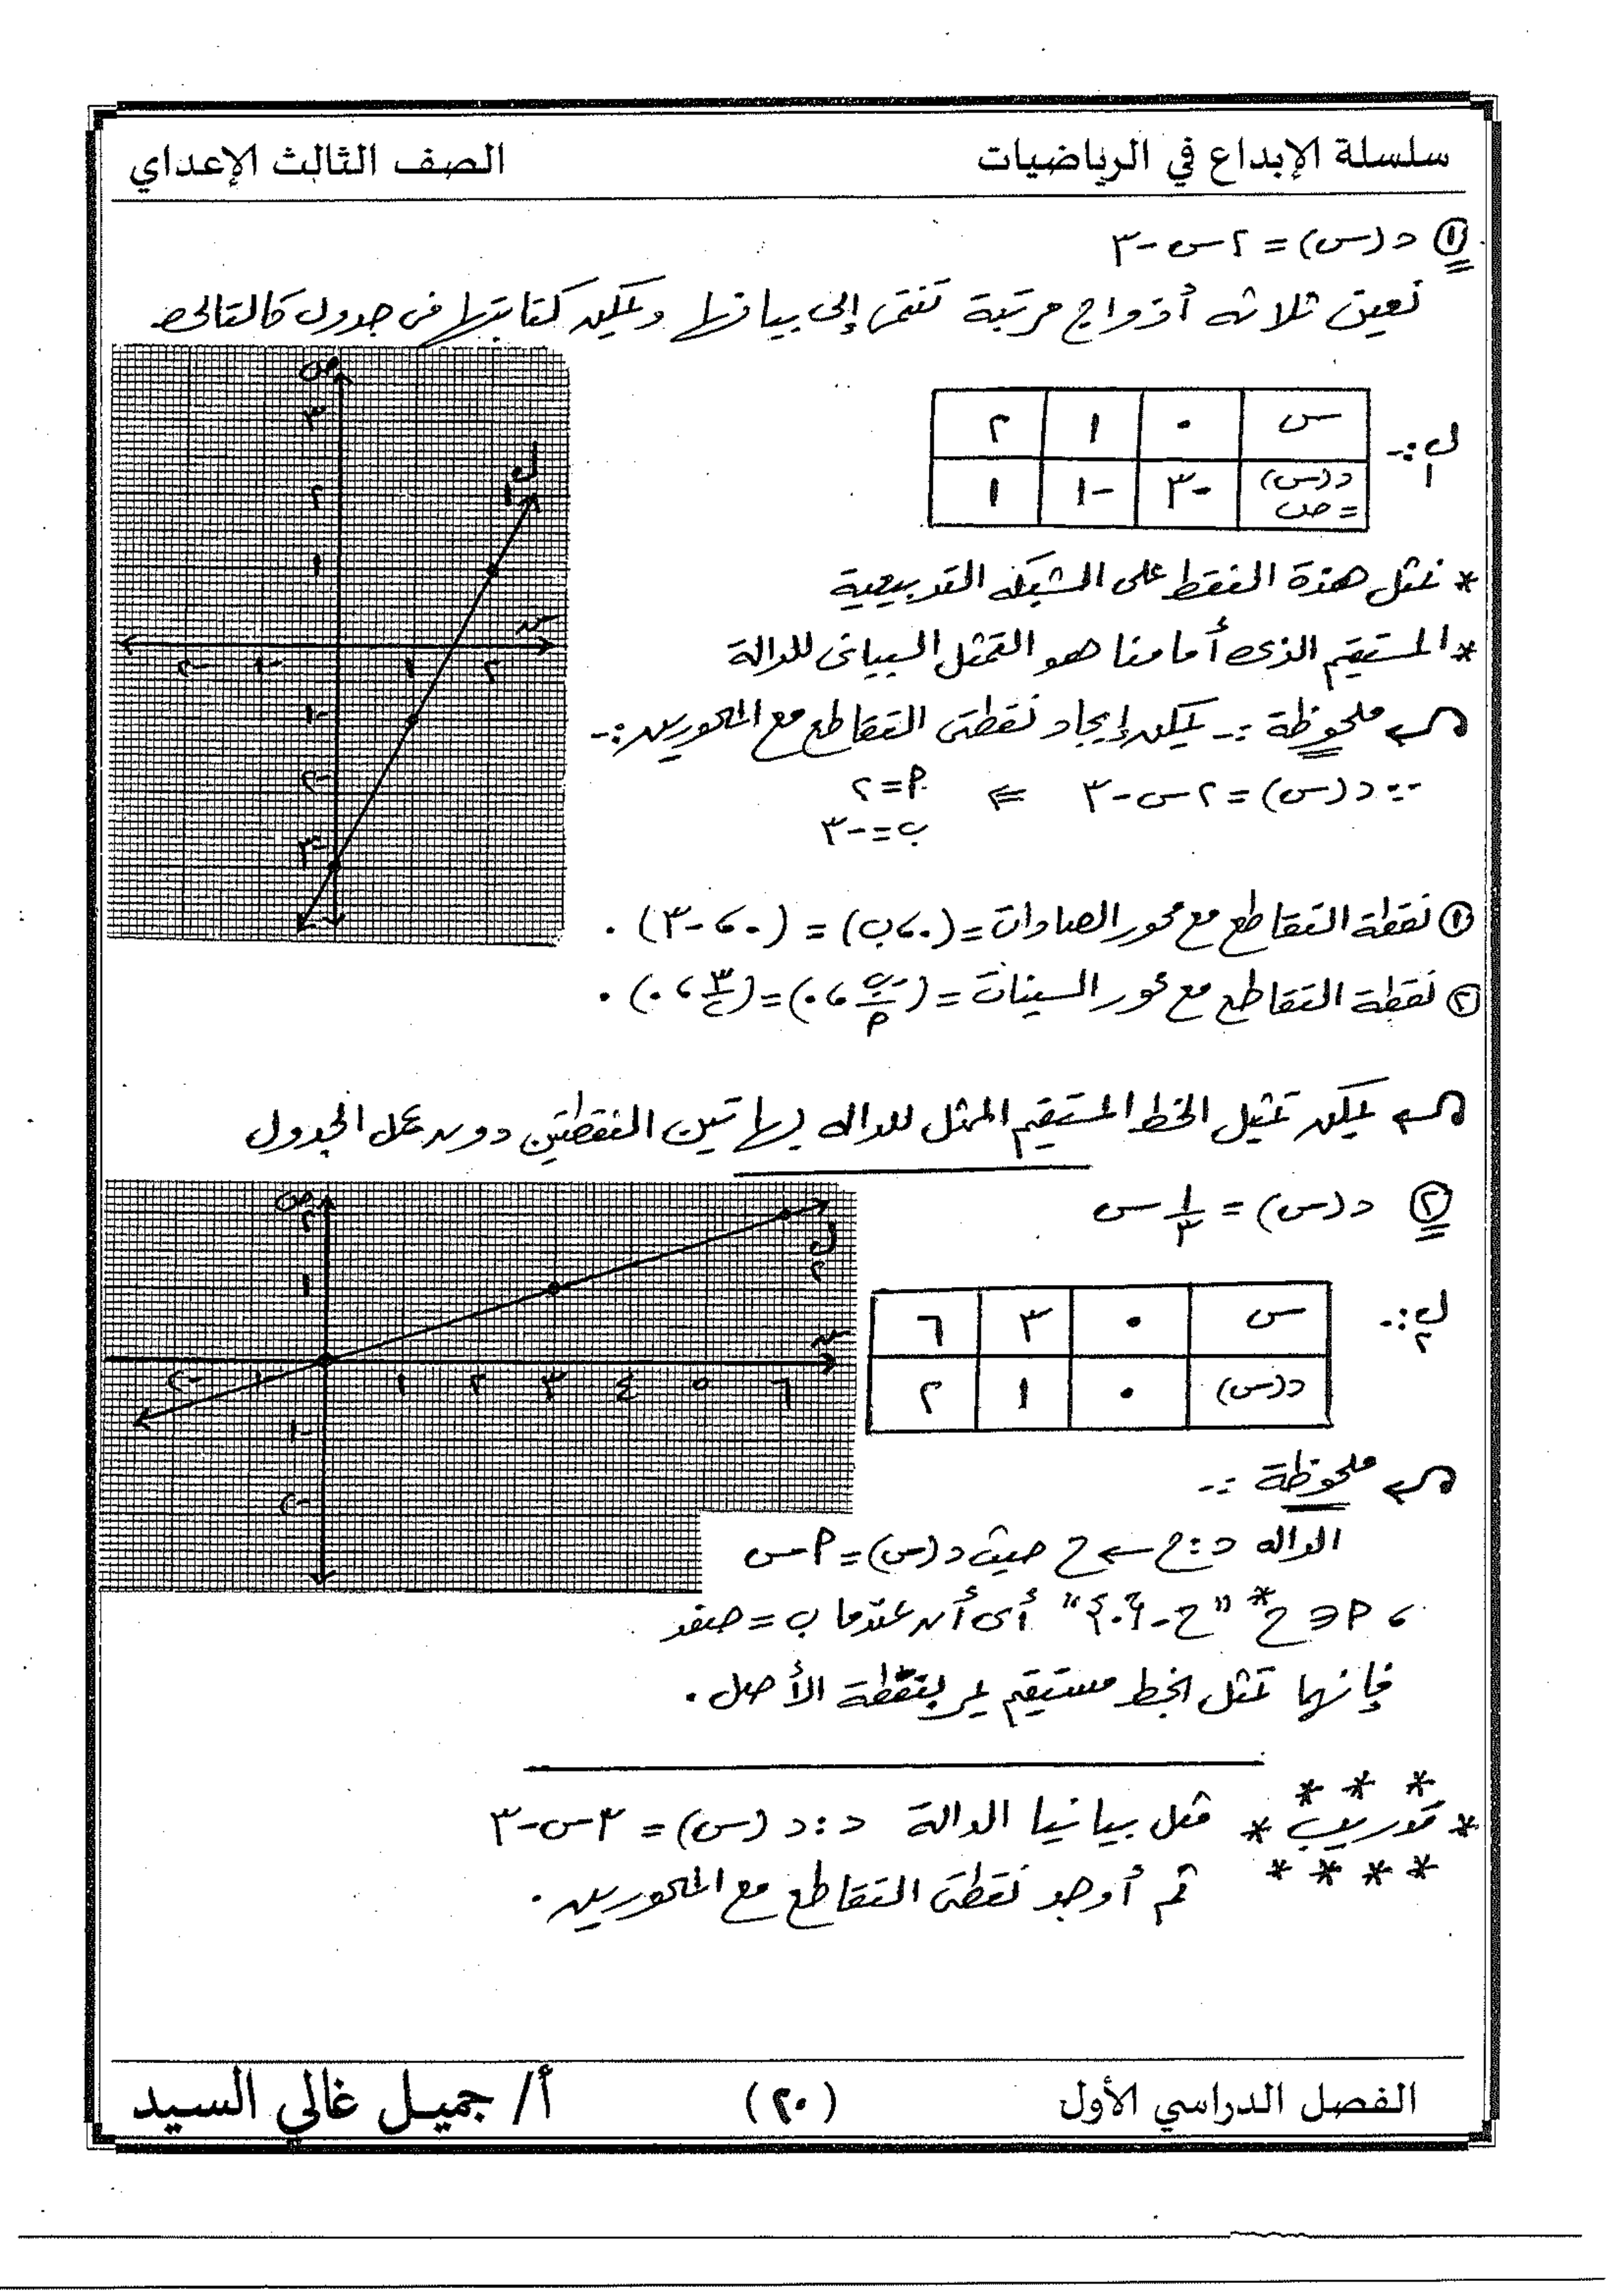 سلسلة الإبداع في الرياضيات
الصف الثالث الإعداي
① د(س) = ٢س - ٣
نعين ثلاثه أزواج مرتبة تنتمى إلى بيانها ويمكن كتابتها فى جدول كالتالى
ل١ :-
س ٠ ١ ٢
د(س) = ص -٣ -١ ١
* نمثل هذة النقط على الشبكه التربيعية
* المستقيم الذى أمامنا هو التمثل البيانى للدالة
ملحوظة :- يمكن إيجاد نقطتى التقاطع مع المحورين :-
∵ د(س) = ٢س - ٣ ⇐ ٢ = P
ب = -٣
① نقطة التقاطع مع محور الصادات = (٠، ب) = (٠، -٣) .
② نقطة التقاطع مع محور السينات = (-ب/P، ٠) = (٣/٢، ٠) .
يمكن تمثيل الخط المستقيم الممثل للداله بهاتين النقطتين دون عمل الجدول
② د(س) = ١/٣ س
ل٢ :-
س ٠ ٣ ٦
د(س) ٠ ١ ٢
ملحوظة :-
الداله د : ح ← ح حيث د(س) = P س
، P ∈ ح* "ح - {٠}" أى أن عندما ب = صفر
فإنها تمثل بخط مستقيم يمر بنقطة الأصل .
* تدريب * مثل بيانيا الدالة د : د(س) = ٣س - ٣
ثم أوجد نقطتى التقاطع مع المحورين .
ص
٣
٢
١
-١
-٢
-٣
-٢ -١ ١ ٢
س
ل١
ص
٢
١
-١
-٢
-٢ -١ ١ ٢ ٣ ٤ ٥ ٦
س
ل٢
الفصل الدراسي الأول
(٢٠)
أ/ جميل غالي السيد